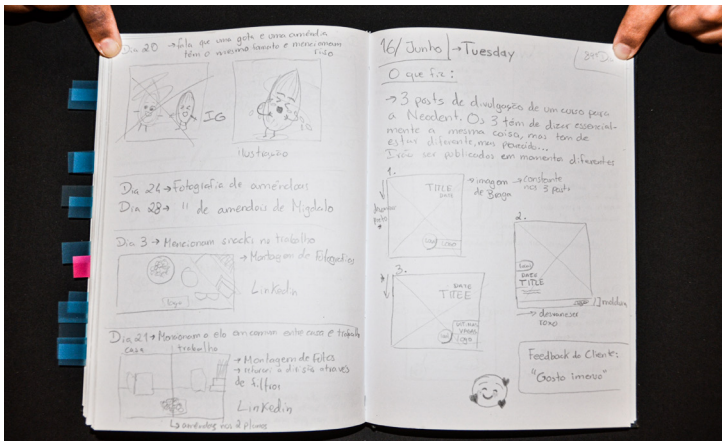 Dia 20 → fala que uma gota e uma amêndoa
têm o mesmo formato e mencionam
riso
IG
IG
ilustração
Dia 24 → Fotografia de amêndoas
Dia 28 → " de amêndoas de Migdalo
Dia 3 → Mencionam snacks no trabalho
→ Montagem de Fotografias
Linkedin
Logo
Dia 21 → Mencionam o elo em comum entre casa e trabalho
casa trabalho
→ Montagem de Fotos
→ retirar a divisão através
de filtros
Linkedin
↳ amêndoas nos 2 planos
16/Junho → Tuesday
O que fiz:
→ 3 posts de divulgação de um curso para
a Neodent. Os 3 têm de dizer essencial-
mente a mesma coisa, mas tem de
estar diferente, mas parecido...
Irão ser publicados em momentos diferentes
1.
TITLE
DATE
LOGO
→ imagem → constante
de fundo nos 3 posts
2.
DATE
TITLE
3.
DATE
TITLE
ÚLTIMAS
VAGAS
LOGO
} moldura
→ desvanecer
roxo
Feedback do Cliente:
"Gosto imenso"